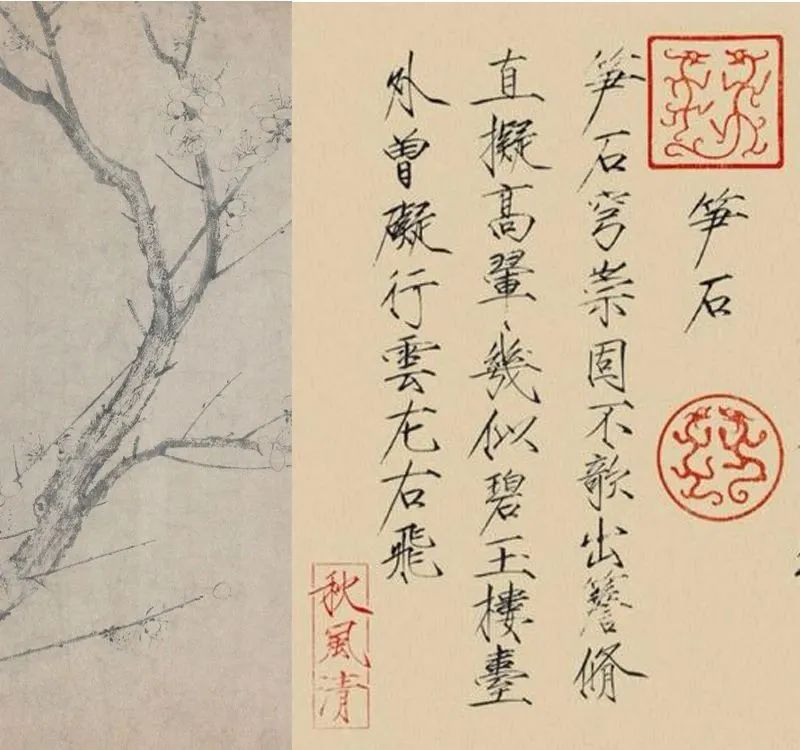 笋石
笋石穹崇固不欹出簷脩
直擬高翬、幾似碧玉樓臺
外曾礙行雲左右飛
秋風清